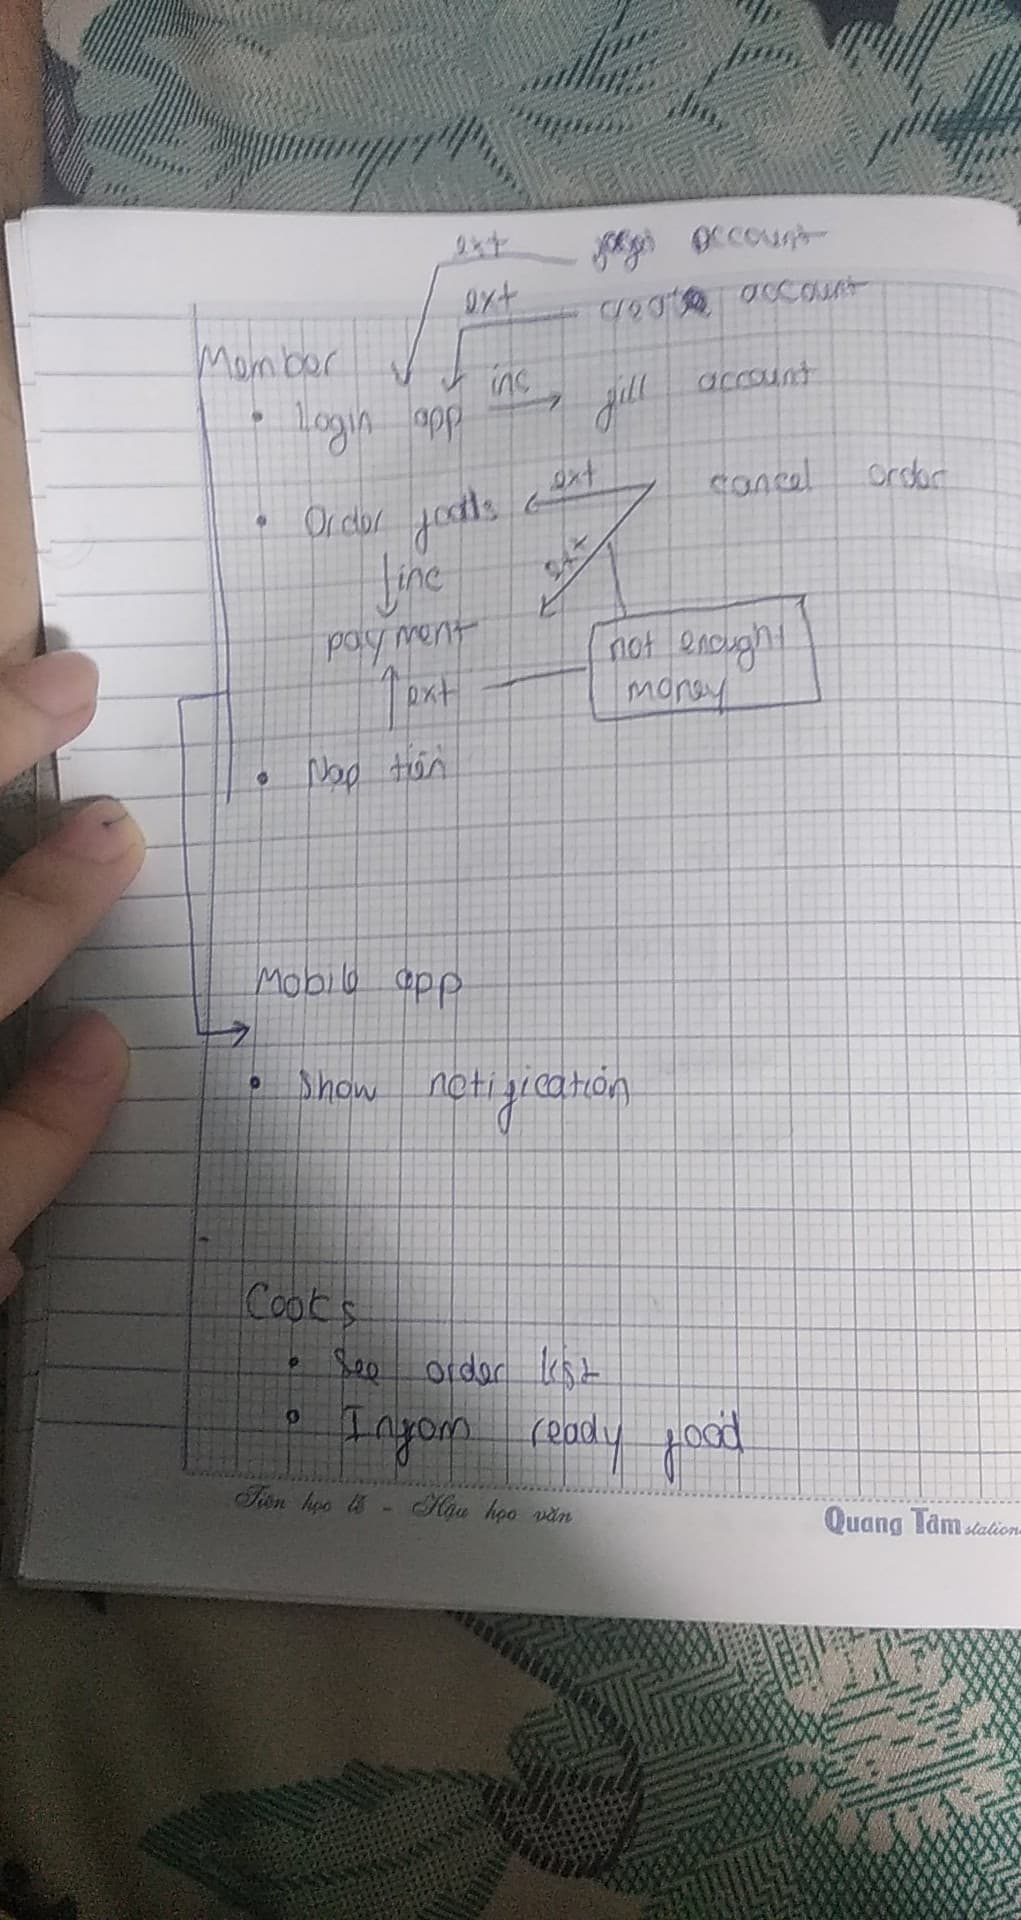 ext account
ext create account
Member
• Login app inc fill account
• Order foods ext cancel order
inc ext
payment not enought
ext money
• Nap tiền
Mobile app
• Show notification
Cooks
• See order list
• Infom ready food
Tiên học lễ - Hậu học văn
Quang Tâm station